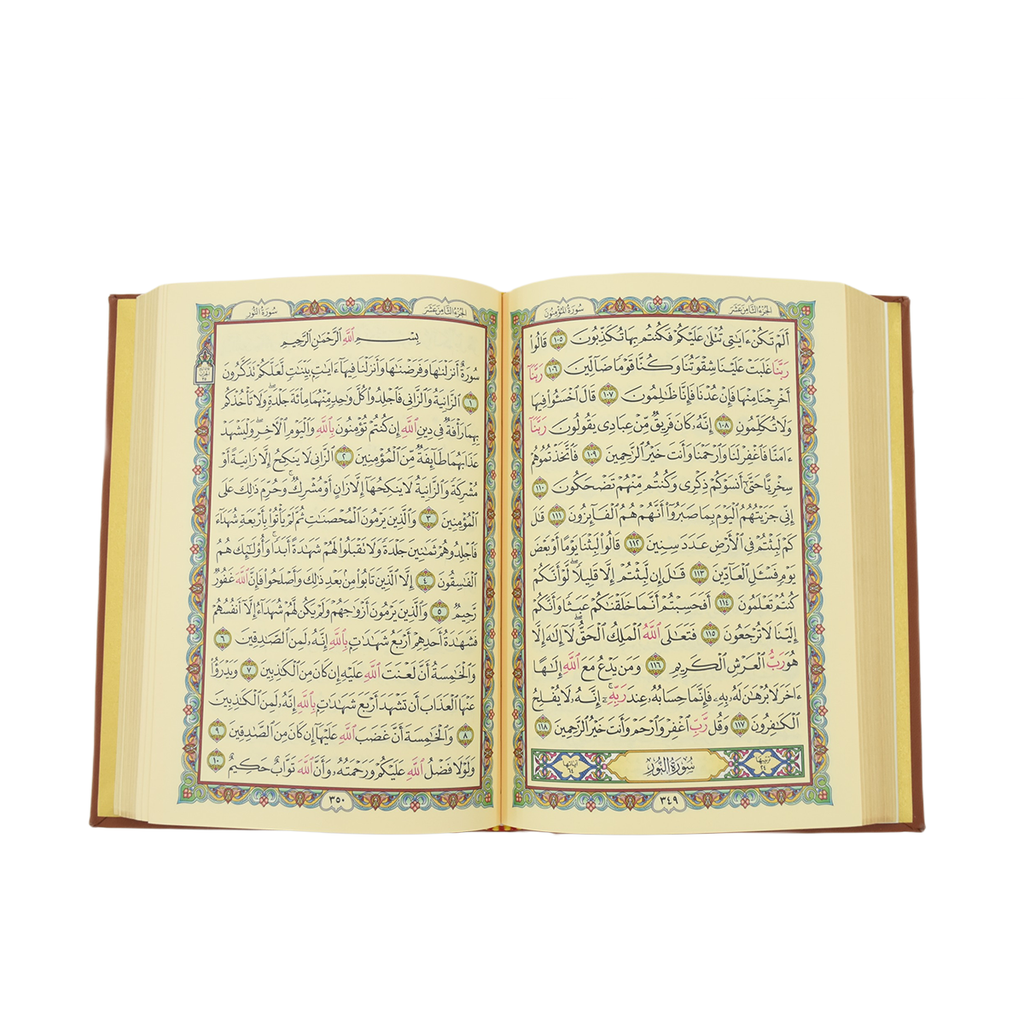 الجزء الثامن عشر
سورة المؤمنون
أَلَمْ تَكُنْ ءَايَٰتِى تُتْلَىٰ عَلَيْكُمْ فَكُنتُم بِهَا تُكَذِّبُونَ ١٠٥ قَالُوا۟
رَبَّنَا غَلَبَتْ عَلَيْنَا شِقْوَتُنَا وَكُنَّا قَوْمًا ضَآلِّينَ ١٠٦ رَبَّنَآ
أَخْرِجْنَا مِنْهَا فَإِنْ عُدْنَا فَإِنَّا ظَٰلِمُونَ ١٠٧ قَالَ ٱخْسَـُٔوا۟ فِيهَا
وَلَا تُكَلِّمُونِ ١٠٨ إِنَّهُۥ كَانَ فَرِيقٌ مِّنْ عِبَادِى يَقُولُونَ رَبَّنَآ
ءَامَنَّا فَٱغْفِرْ لَنَا وَٱرْحَمْنَا وَأَنتَ خَيْرُ ٱلرَّٰحِمِينَ ١٠٩ فَٱتَّخَذْتُمُوهُمْ
سِخْرِيًّا حَتَّىٰٓ أَنسَوْكُمْ ذِكْرِى وَكُنتُم مِّنْهُمْ تَضْحَكُونَ ١١٠
إِنِّى جَزَيْتُهُمُ ٱلْيَوْمَ بِمَا صَبَرُوٓا۟ أَنَّهُمْ هُمُ ٱلْفَآئِزُونَ ١١١ قَٰلَ
كَمْ لَبِثْتُمْ فِى ٱلْأَرْضِ عَدَدَ سِنِينَ ١١٢ قَالُوا۟ لَبِثْنَا يَوْمًا أَوْ بَعْضَ
يَوْمٍ فَسْـَٔلِ ٱلْعَآدِّينَ ١١٣ قَٰلَ إِن لَّبِثْتُمْ إِلَّا قَلِيلًا ۖ لَّوْ أَنَّكُمْ
كُنتُمْ تَعْلَمُونَ ١١٤ أَفَحَسِبْتُمْ أَنَّمَا خَلَقْنَٰكُمْ عَبَثًا وَأَنَّكُمْ
إِلَيْنَا لَا تُرْجَعُونَ ١١٥ فَتَعَٰلَى ٱللَّهُ ٱلْمَلِكُ ٱلْحَقُّ ۖ لَآ إِلَٰهَ إِلَّا
هُوَ رَبُّ ٱلْعَرْشِ ٱلْكَرِيمِ ١١٦ وَمَن يَدْعُ مَعَ ٱللَّهِ إِلَٰهًا
ءَاخَرَ لَا بُرْهَٰنَ لَهُۥ بِهِۦ فَإِنَّمَا حِسَابُهُۥ عِندَ رَبِّهِۦٓ ۚ إِنَّهُۥ لَا يُفْلِحُ
ٱلْكَٰفِرُونَ ١١٧ وَقُل رَّبِّ ٱغْفِرْ وَٱرْحَمْ وَأَنتَ خَيْرُ ٱلرَّٰحِمِينَ ١١٨
ترتيبها ٢٤ سُورَةُ النُّورِ آياتها ٦٤
٣٤٩
الجزء الثامن عشر
سورة النور
بِسْمِ ٱللَّهِ ٱلرَّحْمَٰنِ ٱلرَّحِيمِ
سُورَةٌ أَنزَلْنَٰهَا وَفَرَضْنَٰهَا وَأَنزَلْنَا فِيهَآ ءَايَٰتٍۭ بَيِّنَٰتٍ لَّعَلَّكُمْ تَذَكَّرُونَ
١ ٱلزَّانِيَةُ وَٱلزَّانِى فَٱجْلِدُوا۟ كُلَّ وَٰحِدٍ مِّنْهُمَا مِا۟ئَةَ جَلْدَةٍ ۖ وَلَا تَأْخُذْكُم
بِهِمَا رَأْفَةٌ فِى دِينِ ٱللَّهِ إِن كُنتُمْ تُؤْمِنُونَ بِٱللَّهِ وَٱلْيَوْمِ ٱلْءَاخِرِ ۖ وَلْيَشْهَدْ
عَذَابَهُمَا طَآئِفَةٌ مِّنَ ٱلْمُؤْمِنِينَ ٢ ٱلزَّانِى لَا يَنكِحُ إِلَّا زَانِيَةً أَوْ
مُشْرِكَةً وَٱلزَّانِيَةُ لَا يَنكِحُهَآ إِلَّا زَانٍ أَوْ مُشْرِكٌ ۚ وَحُرِّمَ ذَٰلِكَ عَلَى
ٱلْمُؤْمِنِينَ ٣ وَٱلَّذِينَ يَرْمُونَ ٱلْمُحْصَنَٰتِ ثُمَّ لَمْ يَأْتُوا۟ بِأَرْبَعَةِ شُهَدَآءَ
فَٱجْلِدُوهُمْ ثَمَٰنِينَ جَلْدَةً وَلَا تَقْبَلُوا۟ لَهُمْ شَهَٰدَةً أَبَدًا ۚ وَأُو۟لَٰٓئِكَ هُمُ
ٱلْفَٰسِقُونَ ٤ إِلَّا ٱلَّذِينَ تَابُوا۟ مِنۢ بَعْدِ ذَٰلِكَ وَأَصْلَحُوا۟ فَإِنَّ ٱللَّهَ غَفُورٌ
رَّحِيمٌ ٥ وَٱلَّذِينَ يَرْمُونَ أَزْوَٰجَهُمْ وَلَمْ يَكُن لَّهُمْ شُهَدَآءُ إِلَّآ أَنفُسُهُمْ
فَشَهَٰدَةُ أَحَدِهِمْ أَرْبَعُ شَهَٰدَٰتٍۭ بِٱللَّهِ ۙ إِنَّهُۥ لَمِنَ ٱلصَّٰدِقِينَ ٦
وَٱلْخَٰمِسَةُ أَنَّ لَعْنَتَ ٱللَّهِ عَلَيْهِ إِن كَانَ مِنَ ٱلْكَٰذِبِينَ ٧ وَيَدْرَؤُا۟
عَنْهَا ٱلْعَذَابَ أَن تَشْهَدَ أَرْبَعَ شَهَٰدَٰتٍۭ بِٱللَّهِ ۙ إِنَّهُۥ لَمِنَ ٱلْكَٰذِبِينَ
٨ وَٱلْخَٰمِسَةَ أَنَّ غَضَبَ ٱللَّهِ عَلَيْهَآ إِن كَانَ مِنَ ٱلصَّٰدِقِينَ ٩
وَلَوْلَا فَضْلُ ٱللَّهِ عَلَيْكُمْ وَرَحْمَتُهُۥ وَأَنَّ ٱللَّهَ تَوَّابٌ حَكِيمٌ ١٠
٣٥٠